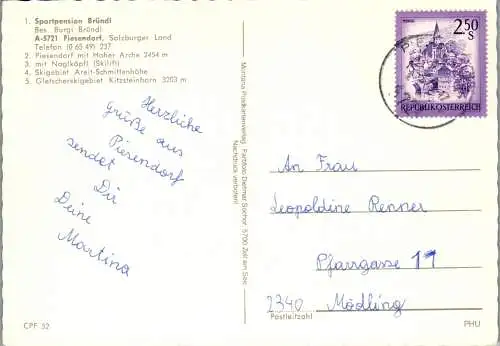 1. Sportpension Bründl
Bes. Burgi Bründl
A-5721 Piesendorf, Salzburger Land
Telefon (0 65 49) 237
2. Piesendorf mit Hoher Arche 2454 m
3. mit Naglköpfl (Skilift)
4. Skigebiet Areit-Schmittenhöhe
5. Gletscherskigebiet Kitzsteinhorn 3203 m
Herzliche
Grüße aus
Piesendorf
sendet Dir
Deine
Martina
CPF 52
Montana Postkartenverlag Farbfoto Dietmar Sochor, 5700 Zell am See
Nachdruck verboten!
2.50
S
REPUBLIK ÖSTERREICH
An Frau
Leopoldine Renner
Pfarrgasse 11
2340 Mödling
Postleitzahl
PHU